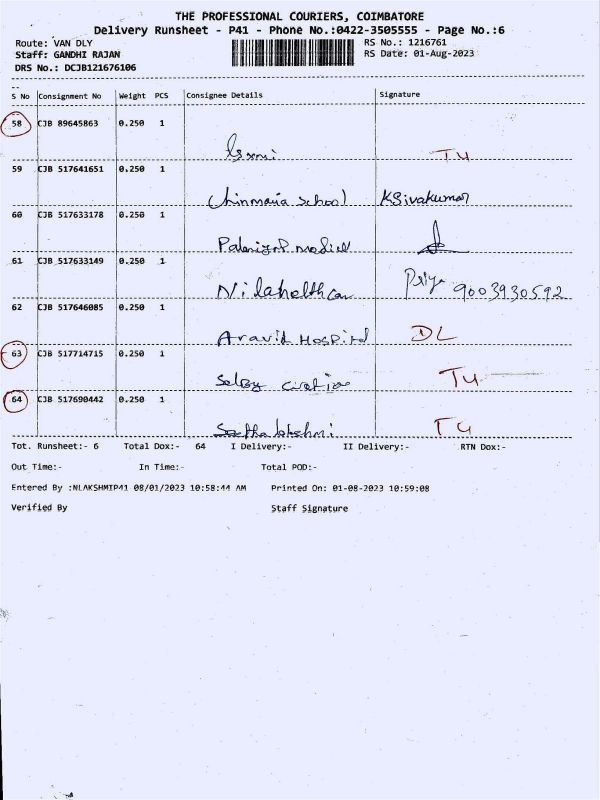 THE PROFESSIONAL COURIERS, COIMBATORE
Delivery Runsheet - P41 - Phone No.:0422-3505555 - Page No.:6
Route: VAN DLY RS No.: 1216761
Staff: GANDHI RAJAN RS Date: 01-Aug-2023
DRS No.: DCJB121676106
S No Consignment No Weight PCS Consignee Details Signature
58 CJB 89645863 0.250 1
TU
59 CJB 517641651 0.250 1
Chinmaia school KSivakumar
60 CJB 517633178 0.250 1
medical
61 CJB 517633149 0.250 1
Priya 9003930592
62 CJB 517646085 0.250 1
Aravid Hospital DL
63 CJB 517714715 0.250 1
TU
64 CJB 517690442 0.250 1
TU
Tot. Runsheet:- 6 Total Dox:- 64 I Delivery:- II Delivery:- RTN Dox:-
Out Time:- In Time:- Total POD:-
Entered By :NLAKSHMIP41 08/01/2023 10:58:44 AM Printed On: 01-08-2023 10:59:08
Verified By Staff Signature